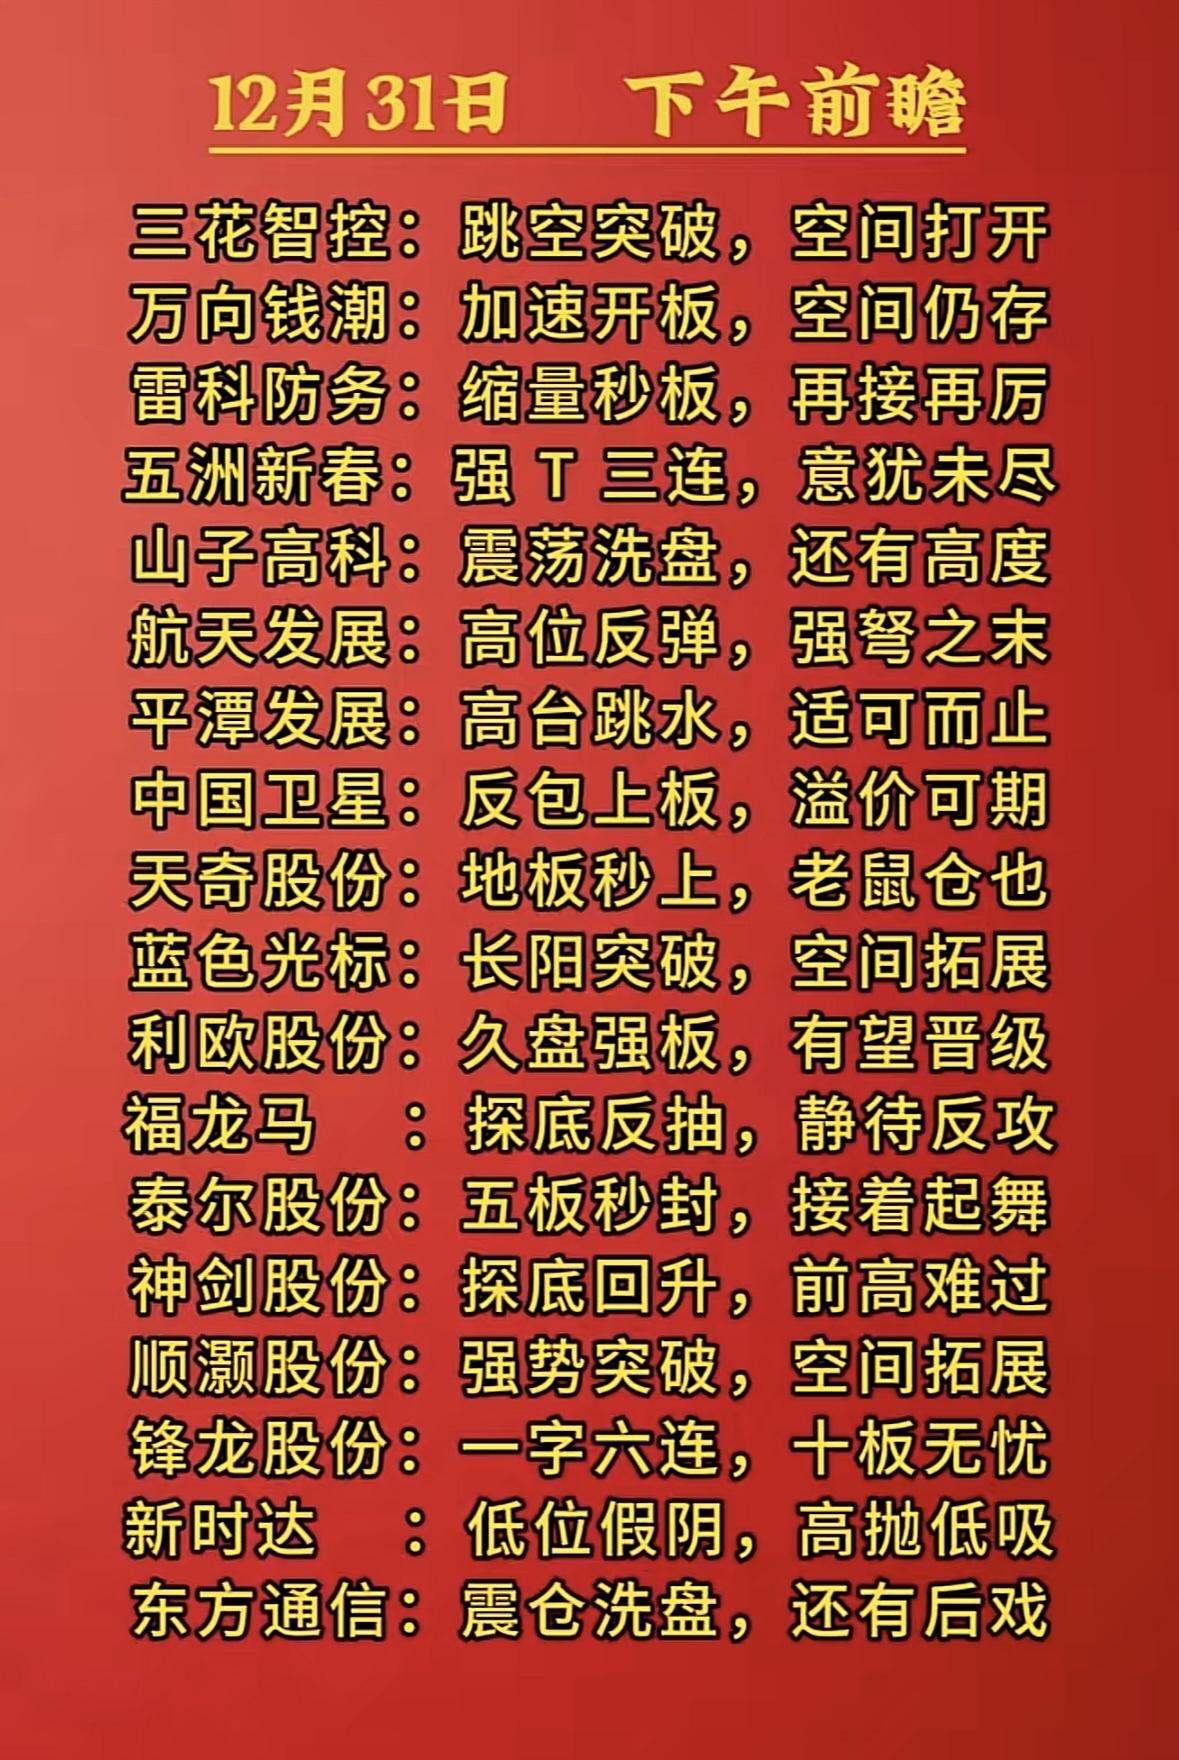 12月31日 下午前瞻
三花智控：跳空突破，空间打开
万向钱潮：加速开板，空间仍存
雷科防务：缩量秒板，再接再厉
五洲新春：强T三连，意犹未尽
山子高科：震荡洗盘，还有高度
航天发展：高位反弹，强弩之末
平潭发展：高台跳水，适可而止
中国卫星：反包上板，溢价可期
天奇股份：地板秒上，老鼠仓也
蓝色光标：长阳突破，空间拓展
利欧股份：久盘强板，有望晋级
福龙马　：探底反抽，静待反攻
泰尔股份：五板秒封，接着起舞
神剑股份：探底回升，前高难过
顺灏股份：强势突破，空间拓展
锋龙股份：一字六连，十板无忧
新时达　：低位假阴，高抛低吸
东方通信：震仓洗盘，还有后戏